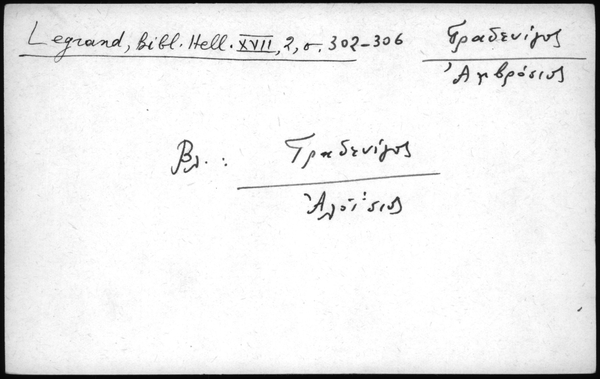 Legrand, Bibl. Hell. XVII, 2, σ. 302-306
Γραδενίγος
Ἀμβρόσιος
Βλ. :
Γραδενίγος
Ἀλοΐσιος